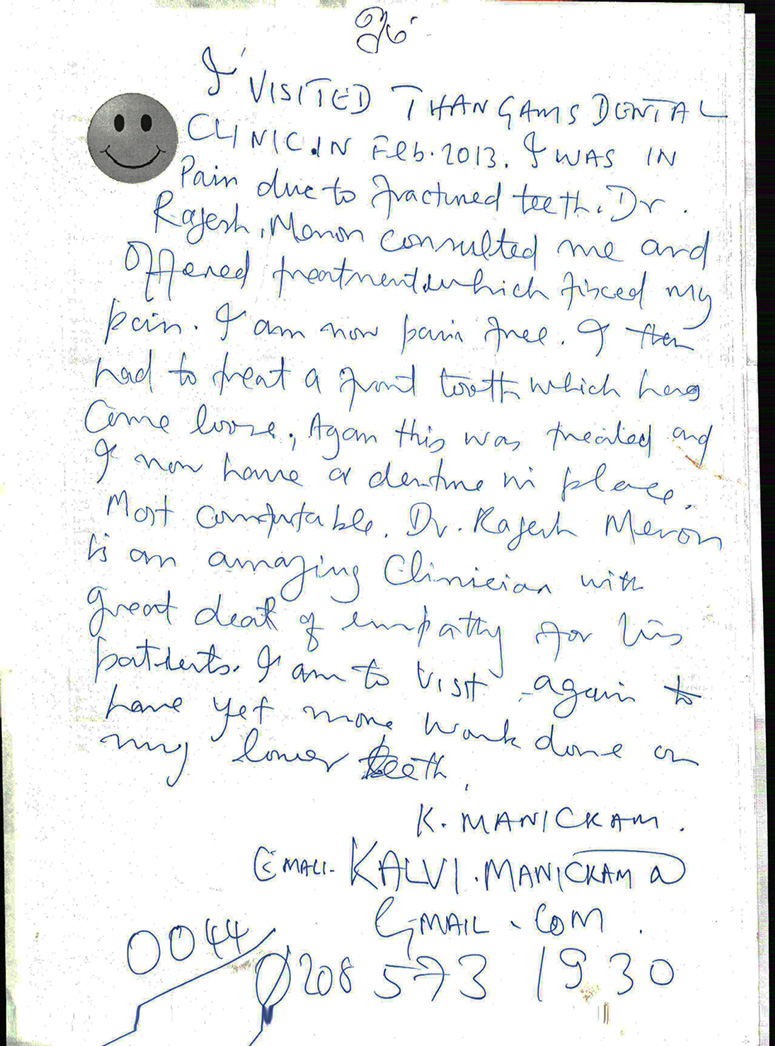 உ
I VISITED THANGAMS DENTAL
CLINIC.IN Feb. 2013. I WAS IN
Pain due to fractured teeth. Dr.
Rajesh. Menon consulted me and
Offered treatment which fixed my
pain. I am now pain free. I then
had to treat a front tooth which has
Come loose, Again this was treated and
I now have a denture in place.
Most comfortable. Dr. Rajesh Menon
is an amazing Clinician with
great deal of empathy for his
patients. I am to visit again to
have yet more work done on
my lower teeth.
K. MANICKAM.
EMAIL. KALVI.MANICKAM@
GMAIL.COM.
0044
0208 573 1930